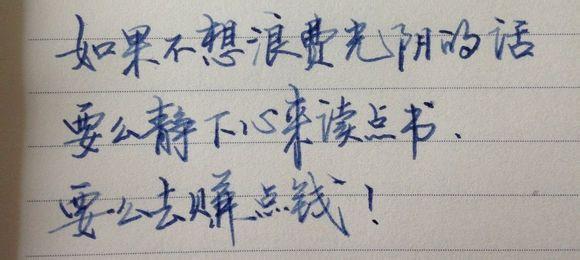 如果不想浪费光阴的话
要么静下心来读点书.
要么去赚点钱!